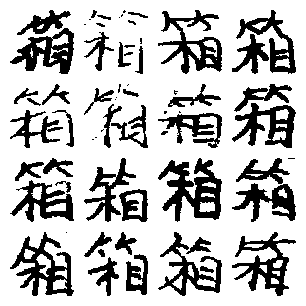 箱箱箱箱
箱箱箱箱
箱箱箱箱
箱箱箱箱